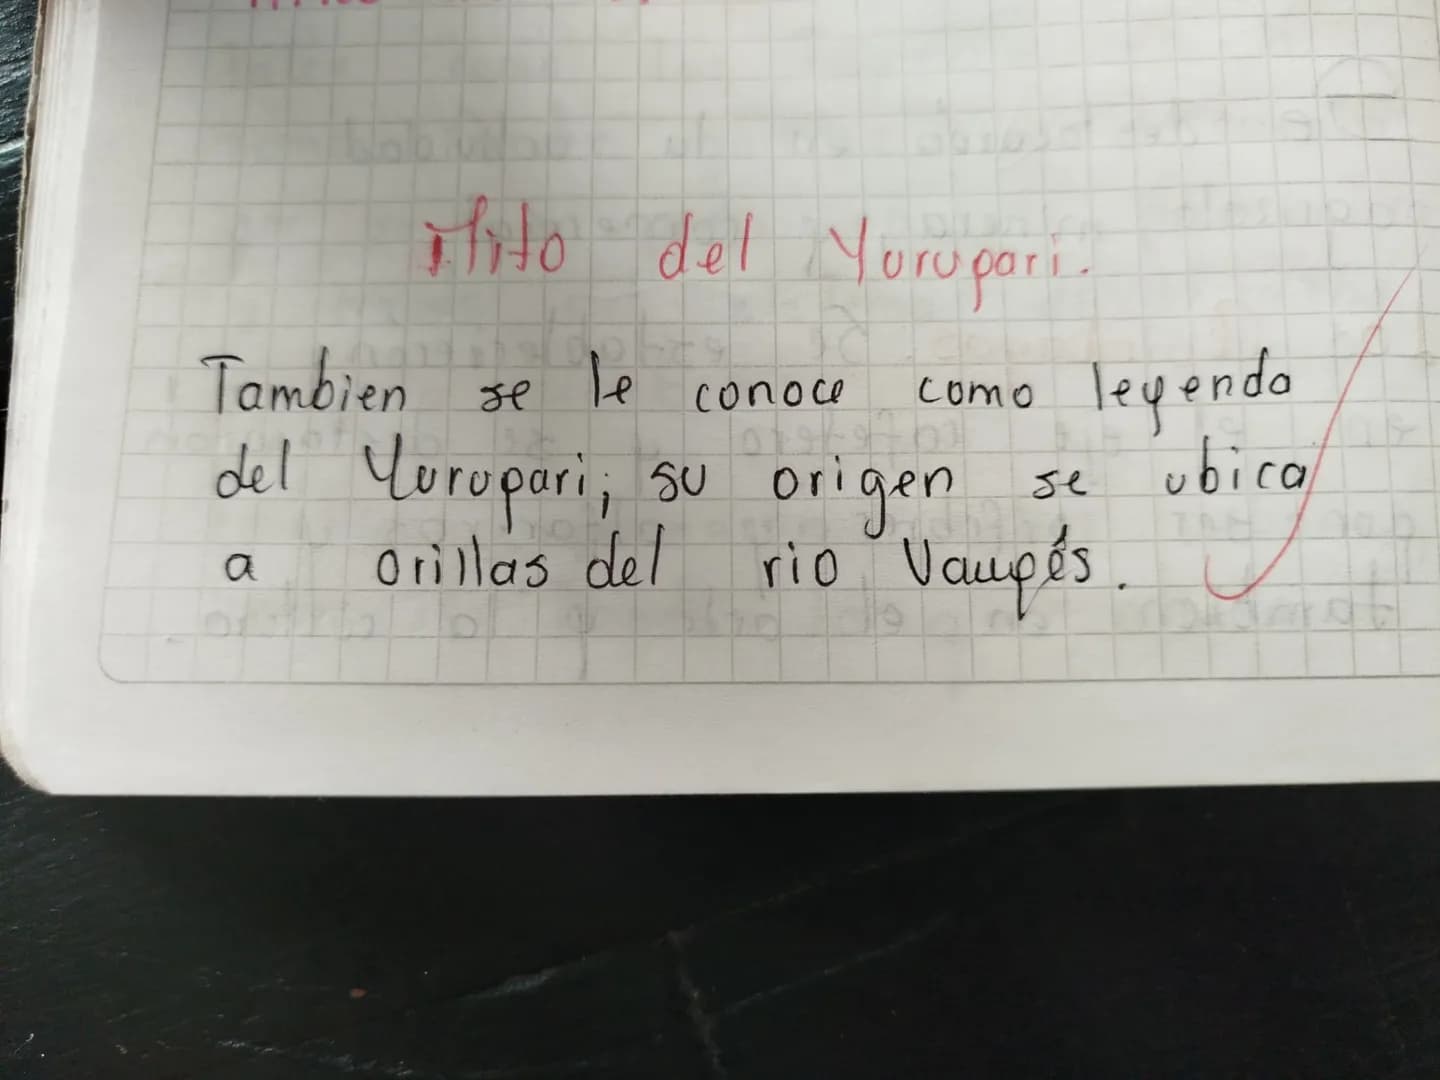 Mito del Yurupari.
Tambien se le conoce como leyenda
del Yurupari; su origen se ubica
a orillas del rio Vaupés.